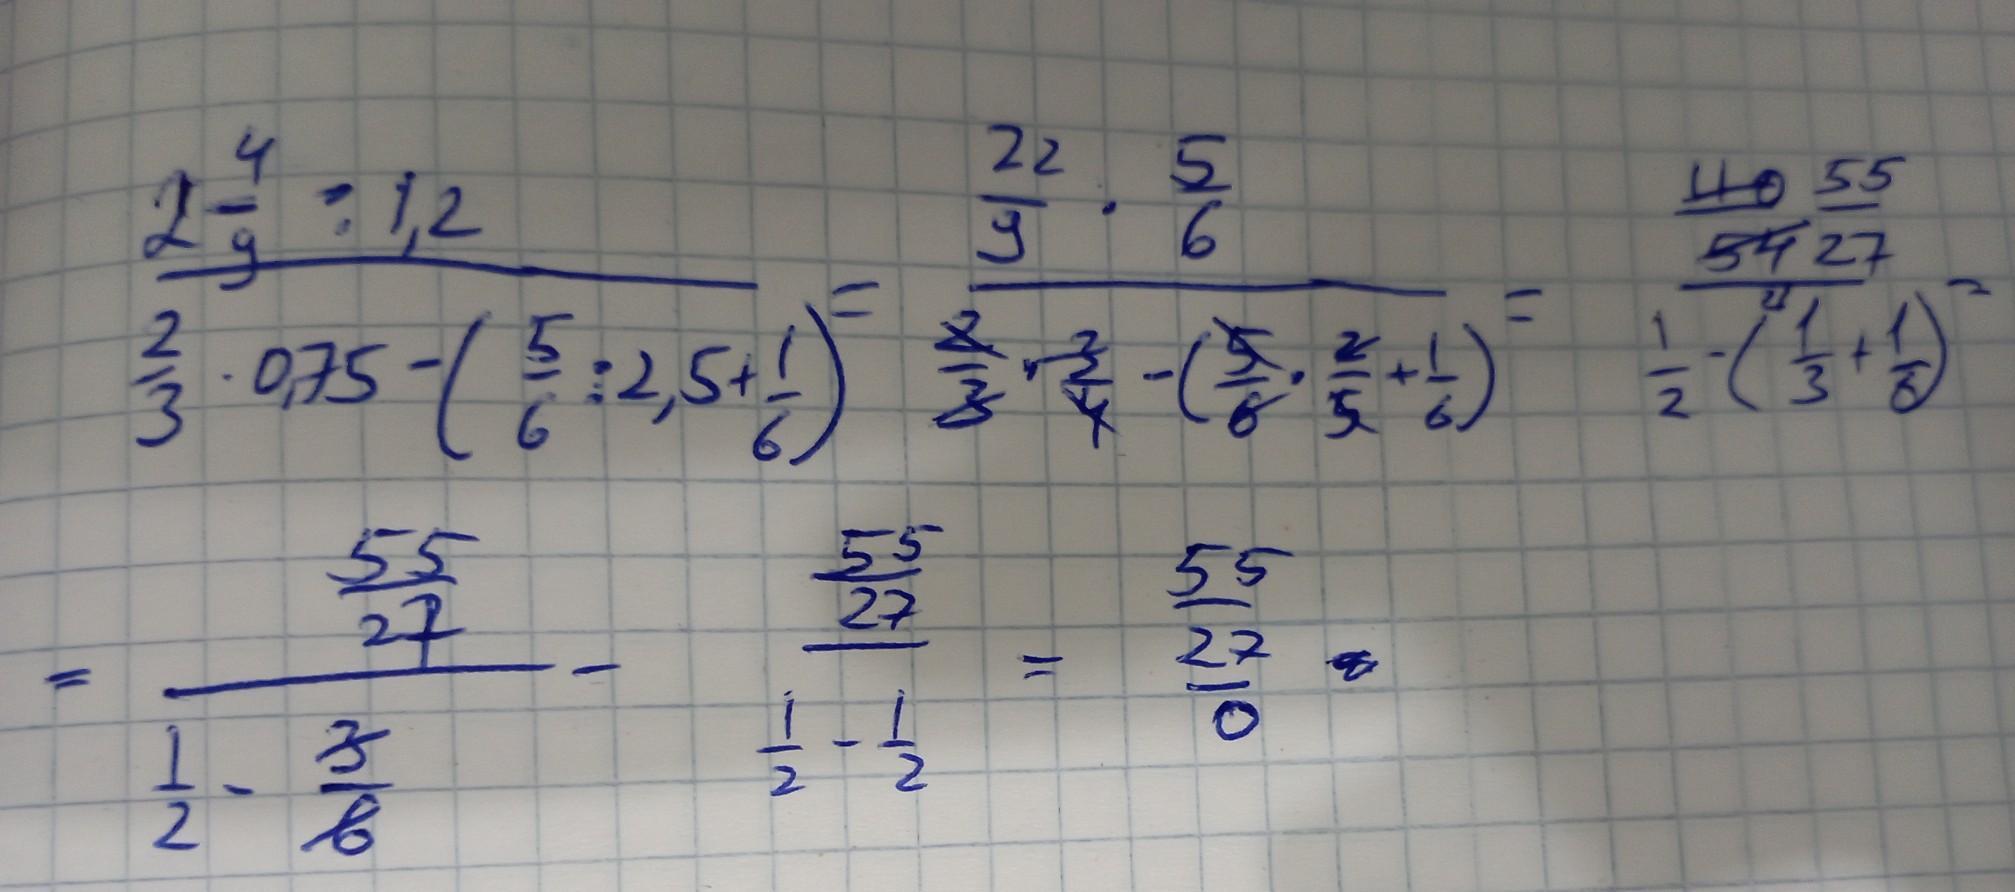 2 4/9 : 1,2 / (2/3 · 0,75 - (5/6 : 2,5 + 1/6)) = (22/9 · 5/6) / (2/3 · 3/4 - (5/6 · 2/5 + 1/6)) = (110/54 55/27) / (1/2 - (1/3 + 1/6)) =
= (55/27) / (1/2 - 3/6) = (55/27) / (1/2 - 1/2) = (55/27) / 0